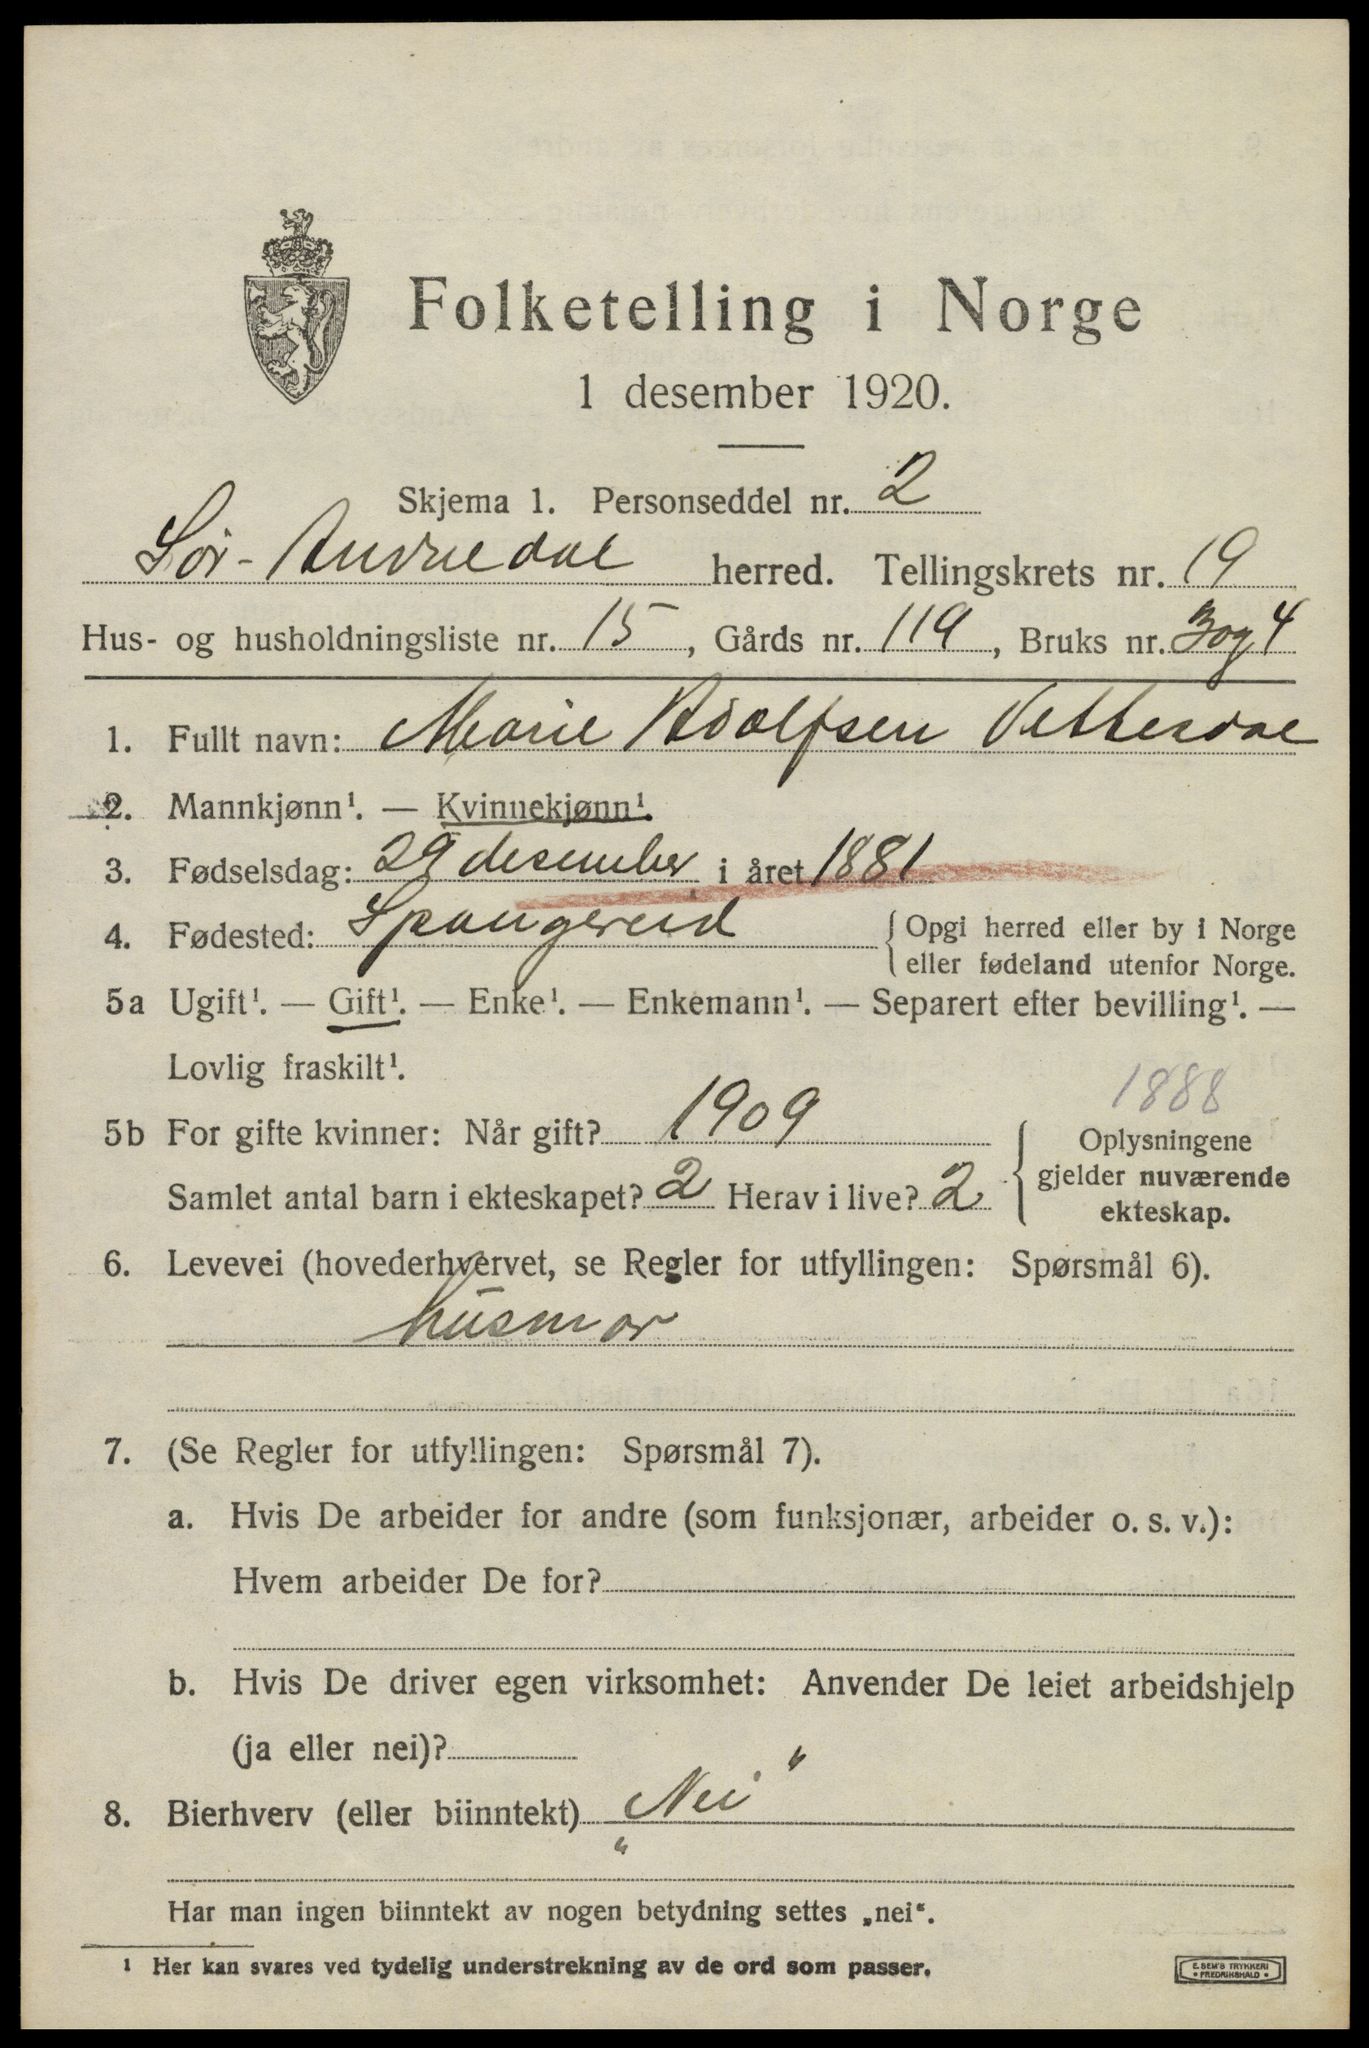 Folketelling i Norge
1 desember 1920.
Skjema 1. Personseddel nr. 2
Sør-Audnedal herred. Tellingskrets nr. 19
Hus- og husholdningsliste nr. 15, Gårds nr. 119, Bruks nr. 3 og 4
1. Fullt navn: Marie Adolfsen Vetterdal
2. Mannkjønn¹. — Kvinnekjønn¹.
3. Fødselsdag: 29 desember i året 1881
4. Fødested: Spangereid { Opgi herred eller by i Norge
eller fødeland utenfor Norge.
5a Ugift¹. — Gift¹. — Enke¹. — Enkemann¹. — Separert efter bevilling¹. —
Lovlig fraskilt¹.
1888
5b For gifte kvinner: Når gift? 1909
Samlet antal barn i ekteskapet? 2 Herav i live? 2
{ Oplysningene
gjelder nuværende
ekteskap.
6. Levevei (hovederhvervet, se Regler for utfyllingen: Spørsmål 6).
husmor
7. (Se Regler for utfyllingen: Spørsmål 7).
a. Hvis De arbeider for andre (som funksjonær, arbeider o. s. v.):
Hvem arbeider De for?
b. Hvis De driver egen virksomhet: Anvender De leiet arbeidshjelp
(ja eller nei)?
8. Bierhverv (eller biinntekt) „Nei"
Har man ingen biinntekt av nogen betydning settes „nei".
¹ Her kan svares ved tydelig understrekning av de ord som passer.
E. SEM'S TRYKKERI
• FREDRIKSHALD •